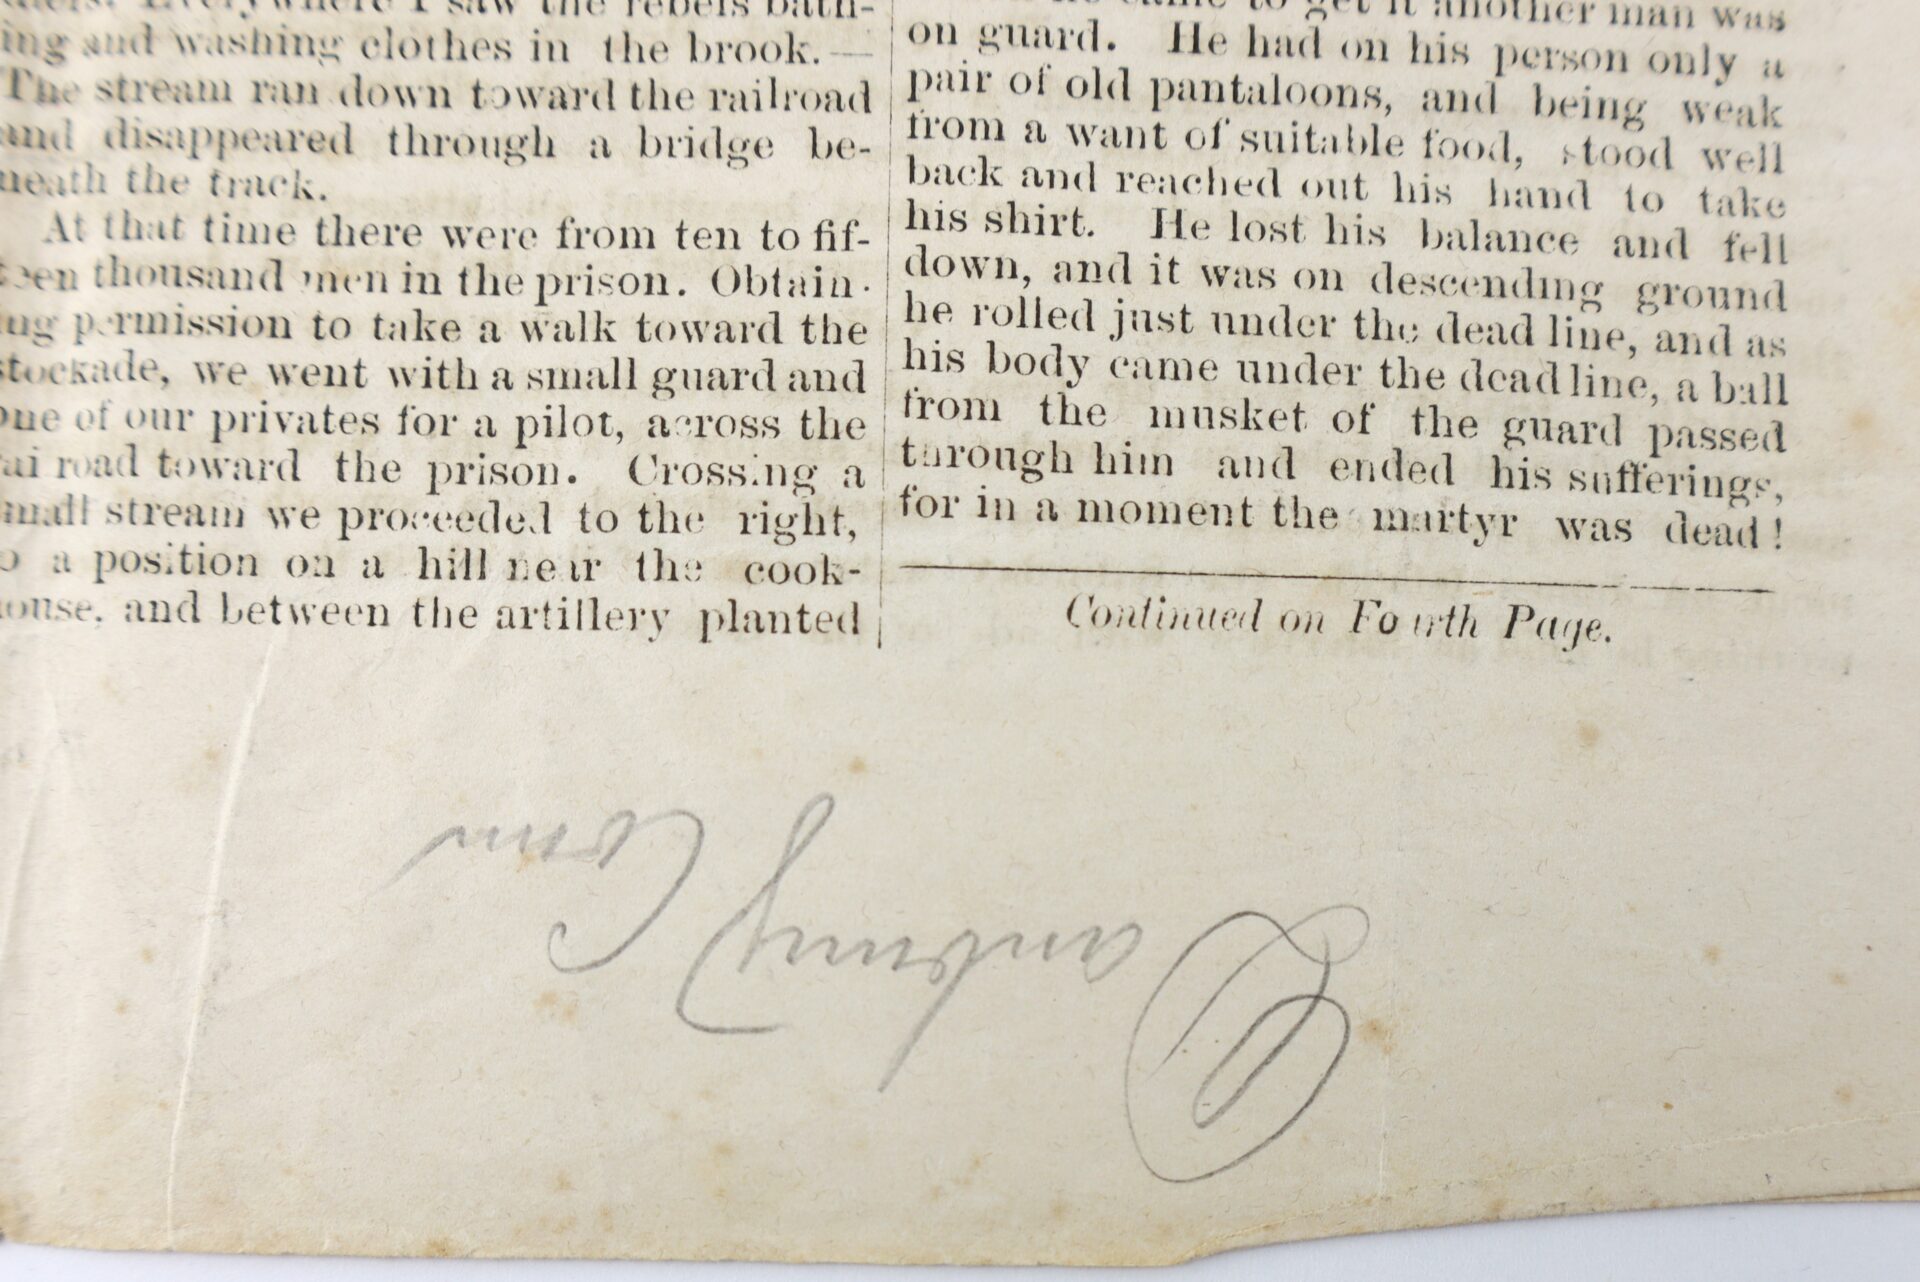 Everywhere I saw the rebels bath-
ing and washing clothes in the brook.—
The stream ran down toward the railroad
and disappeared through a bridge be-
neath the track.
At that time there were from ten to fif-
teen thousand men in the prison. Obtain-
ing permission to take a walk toward the
stockade, we went with a small guard and
one of our privates for a pilot, across the
rai road toward the prison. Crossing a
small stream we proceeded to the right,
to a position on a hill near the cook-
house, and between the artillery planted
he came to get it another man was
on guard. He had on his person only a
pair of old pantaloons, and being weak
from a want of suitable food, stood well
back and reached out his hand to take
his shirt. He lost his balance and fell
down, and it was on descending ground
he rolled just under the dead line, and as
his body came under the dead line, a ball
from the musket of the guard passed
through him and ended his sufferings,
for in a moment the martyr was dead!
Continued on Fourth Page.
Canbury
Conn